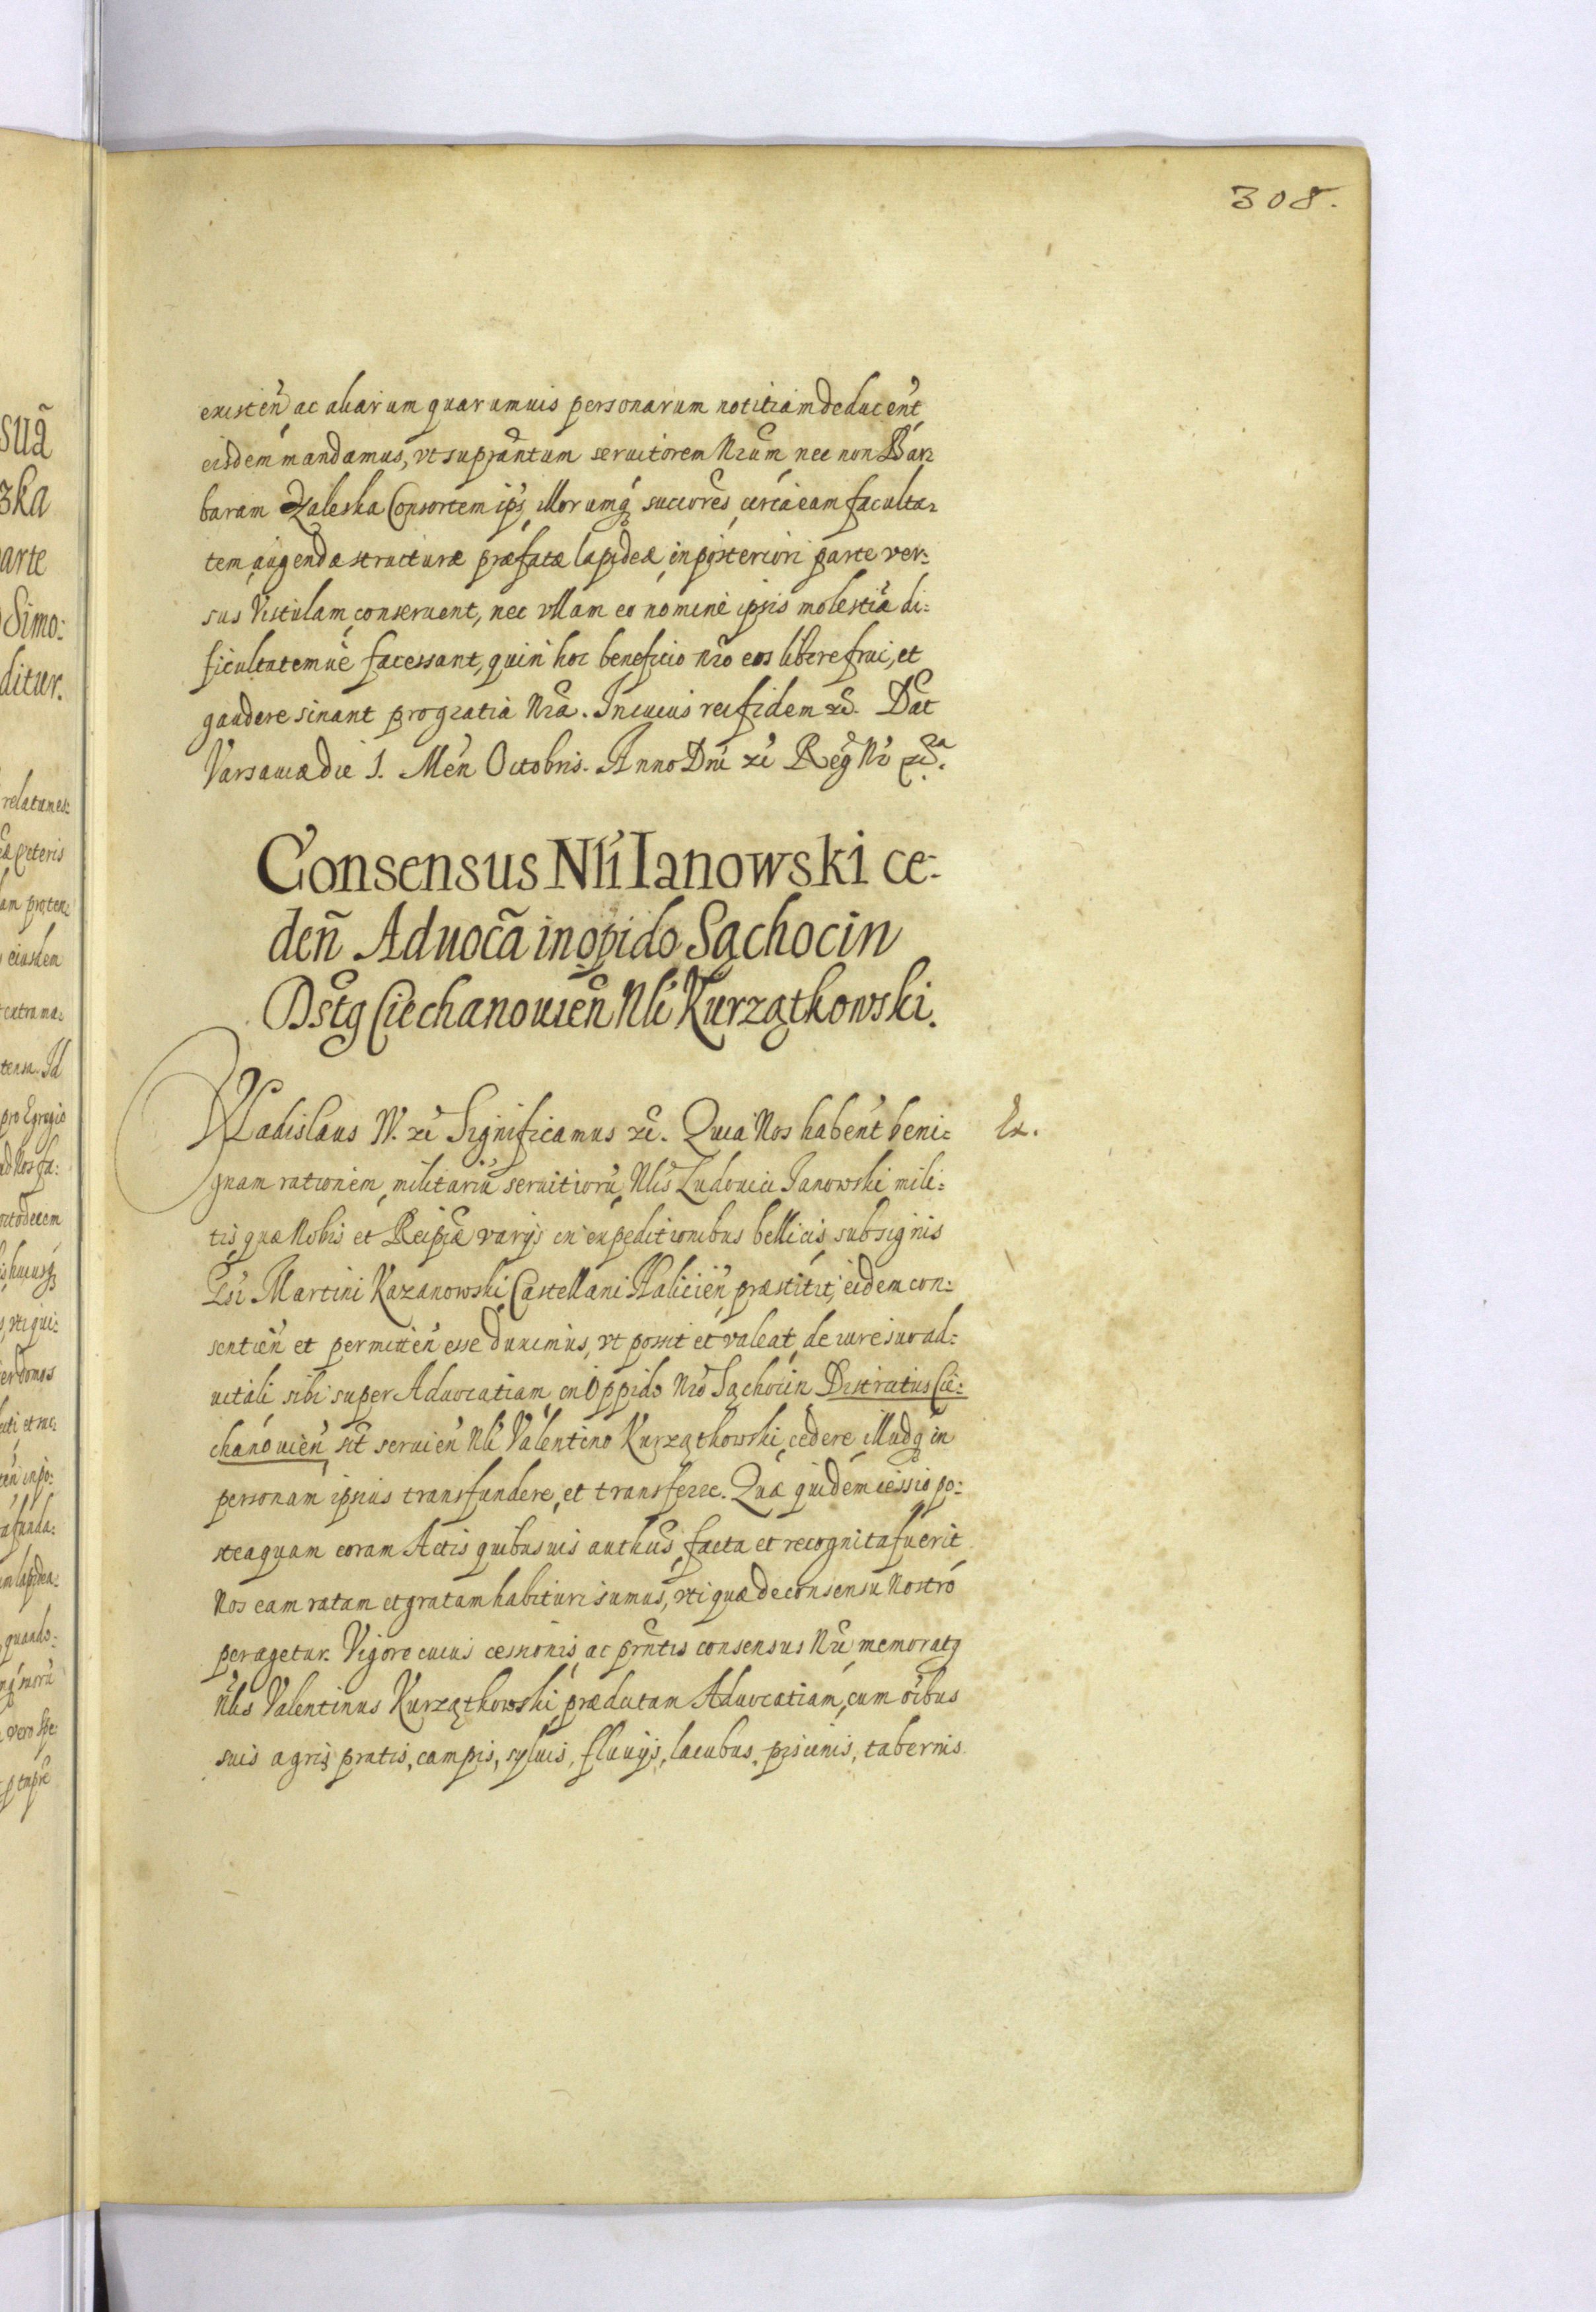 308.
existen̄, ac aliarum quarumuis personarum notitiam deducent
eisdem mandamus, vt suprantum seruitorem Nrum nec non Bar=
baram Zaleska Consortem ips, illorumq̃ succores, circa eam faculta=
tem augendæ structuræ præfatæ lapideæ, in posteriori parte ver=
sus Vistulam, conseruent, nec vllam eo nomine ipsis molestiã di=
ficultatemue facessant, quin hoc beneficio nro eos libere frui, et
gaudere sinant pro gratia Nra. In cuius rei fidem etc. Dat
Varsauiæ die 1. Men Octobris. Anno Dni etc Reg Nr etc.
Consensus Nli Ianowski ce-
deñ Aduocã in opido Sąchocin
Dstg Ciechanouień Nli Kurzątkowski.
Vladislaus IV. etc Significamus etc. Quia Nos habent beni=
Ex.
gnam rationem, militariũ seruitiorũ, Nlis Ludouici Janowski mili=
tis, quæ Nobis et Reipcæ varijs in expeditionibus bellicis, sub signis
Gsi Martini Kazanowski, Castellani Halicień, præstitit, eidem con=
sentień et permitteń esse duximus, vt possit et valeat, de iure suo ad=
uitali sibi super Aduocatiam, in Oppido Nro Sąchocin Districtus Cie=
chanouień, sit seruień Nli Valentino Kurzątkowski, cedere, illudq̃ in
personam ipsius transfundere, et transferre. Quæ quidem cessio po=
steaquam coram Actis quibusuis authcis, facta et recognita fuerit
Nos eam ratam et gratam habituri sumus, vti quæ de consensu Nostro
peragetur. Vigore cuius cessionis, ac prntis consensus Nri, memoratg
Nlis Valentinus Kurzątkowski, prædictam Aduocatiam, cum oibus
suis agris, pratis, campis, syluis, fluuijs, lacubus, piscinis, tabernis